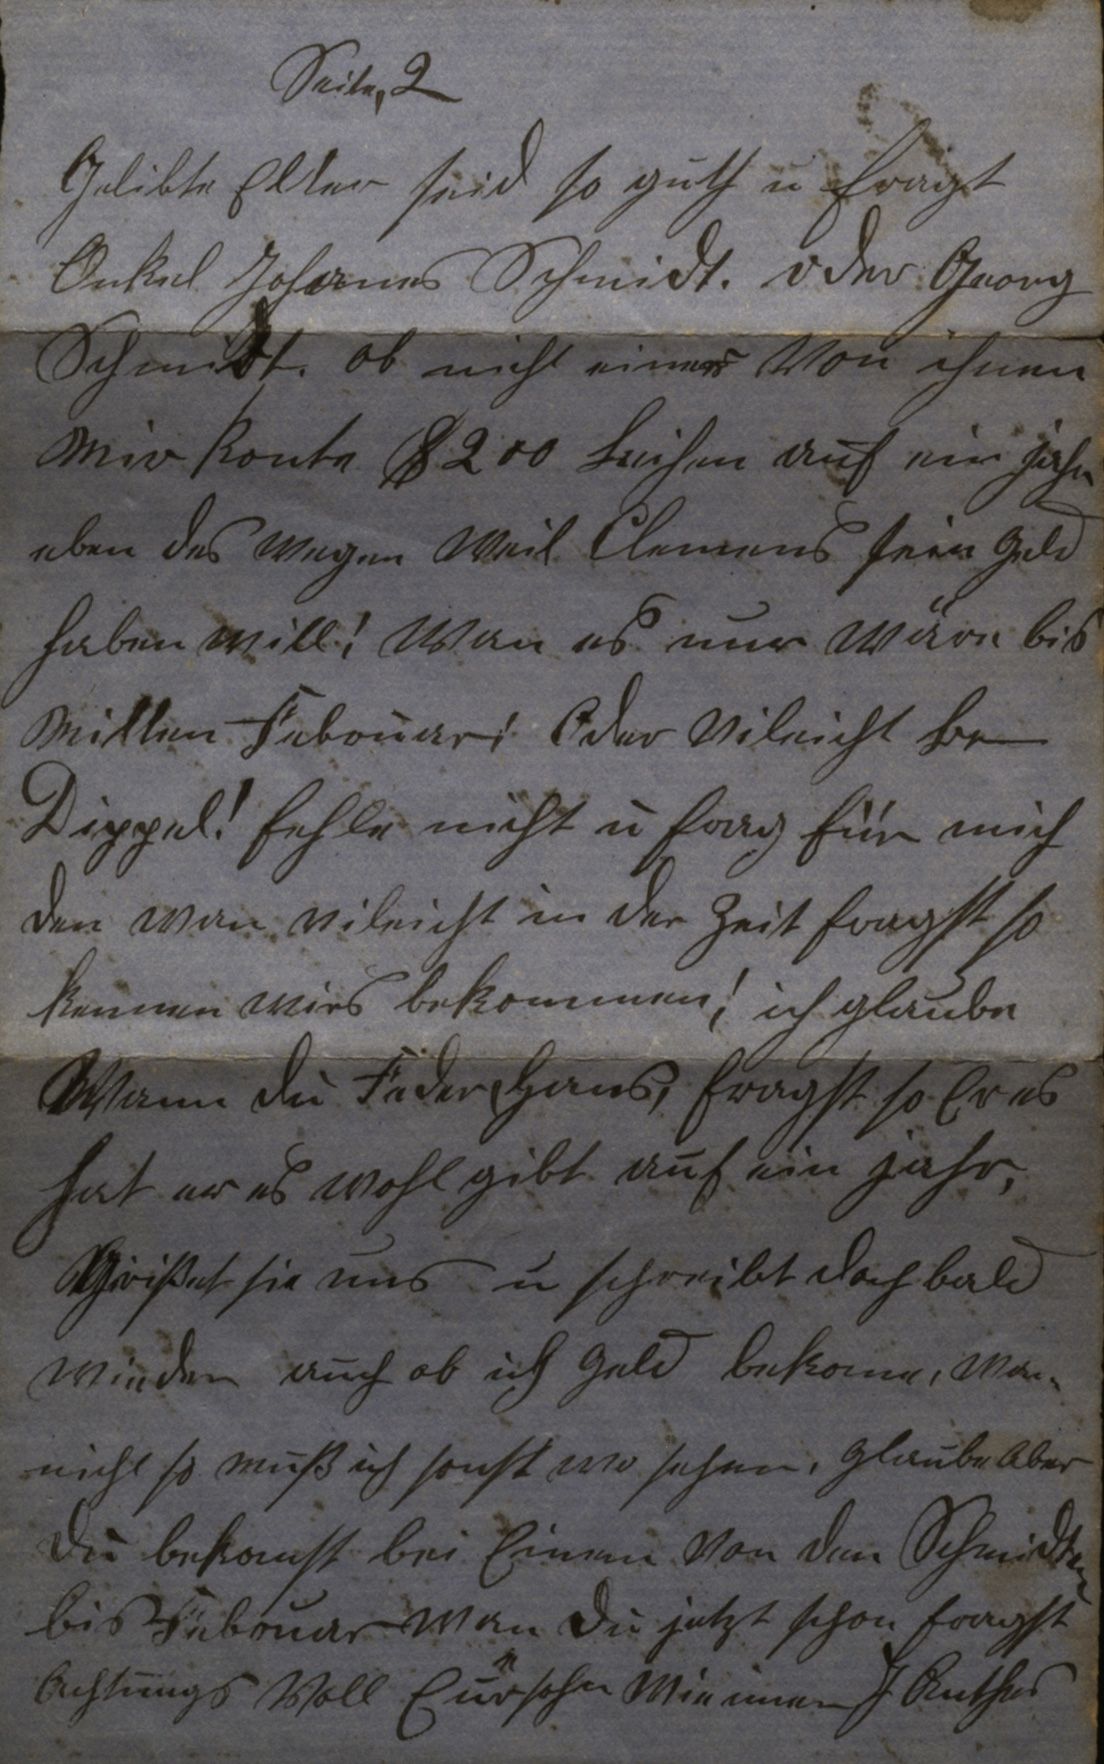 Seite, 2
Gelibte Elter seid so guth u fragt
Onkel Johanes Schmidt. oder Georg
Schmidt. ob nicht einer Von ihnen
Mir konte $200 Leihen auf ein jahr
eben des wegen Weil Clemens sein Geld
haben will! Wan es nur Wäre bis
Mitten Februar! Oder Vileicht
Dippel! fehle nicht u frag für mich
den wan vileicht in der Zeit fragst so
kennen wirs bekommen! ich glaube
Wann du Feder Hans, fragst so Er es
hat er es wohl gibt auf ein jahr,
Grißet sie uns u schreibt doch bald
wieder auch ob ich Geld bekome, wan
nicht so muß ich sonst wo sehen, glaube aber
Du bekomst bei Einem Von den Schmidten
bis Februar wan Du jetzt schon fragst
Achtungs Voll Euer sohn Wie immer J